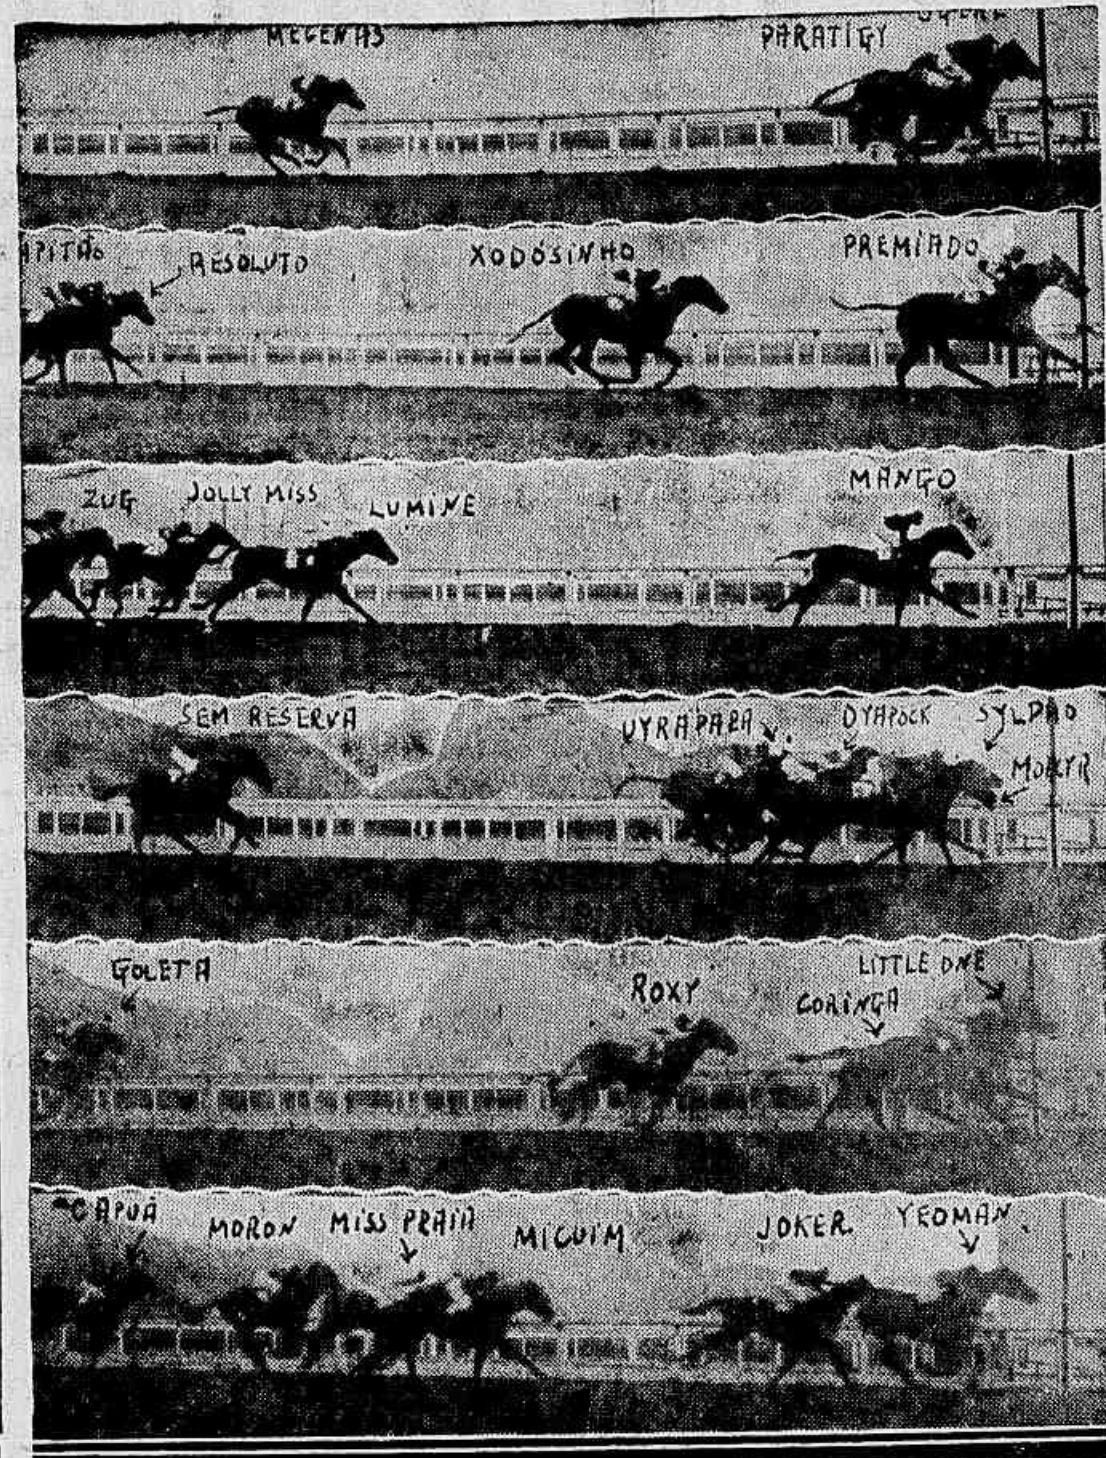 MECENAS PARATIGY
RESOLUTO XODÓSINHO PREMIADO
ZUG JOLLY MISS LUMINE MANGO
SEM RESERVA UYRAPARA OYAPOCK
GOLETA ROXY CORINGA LITTLE ONE
CAPUÁ MORON MISS PRAIA MIGUIM JOKER YEOMAN